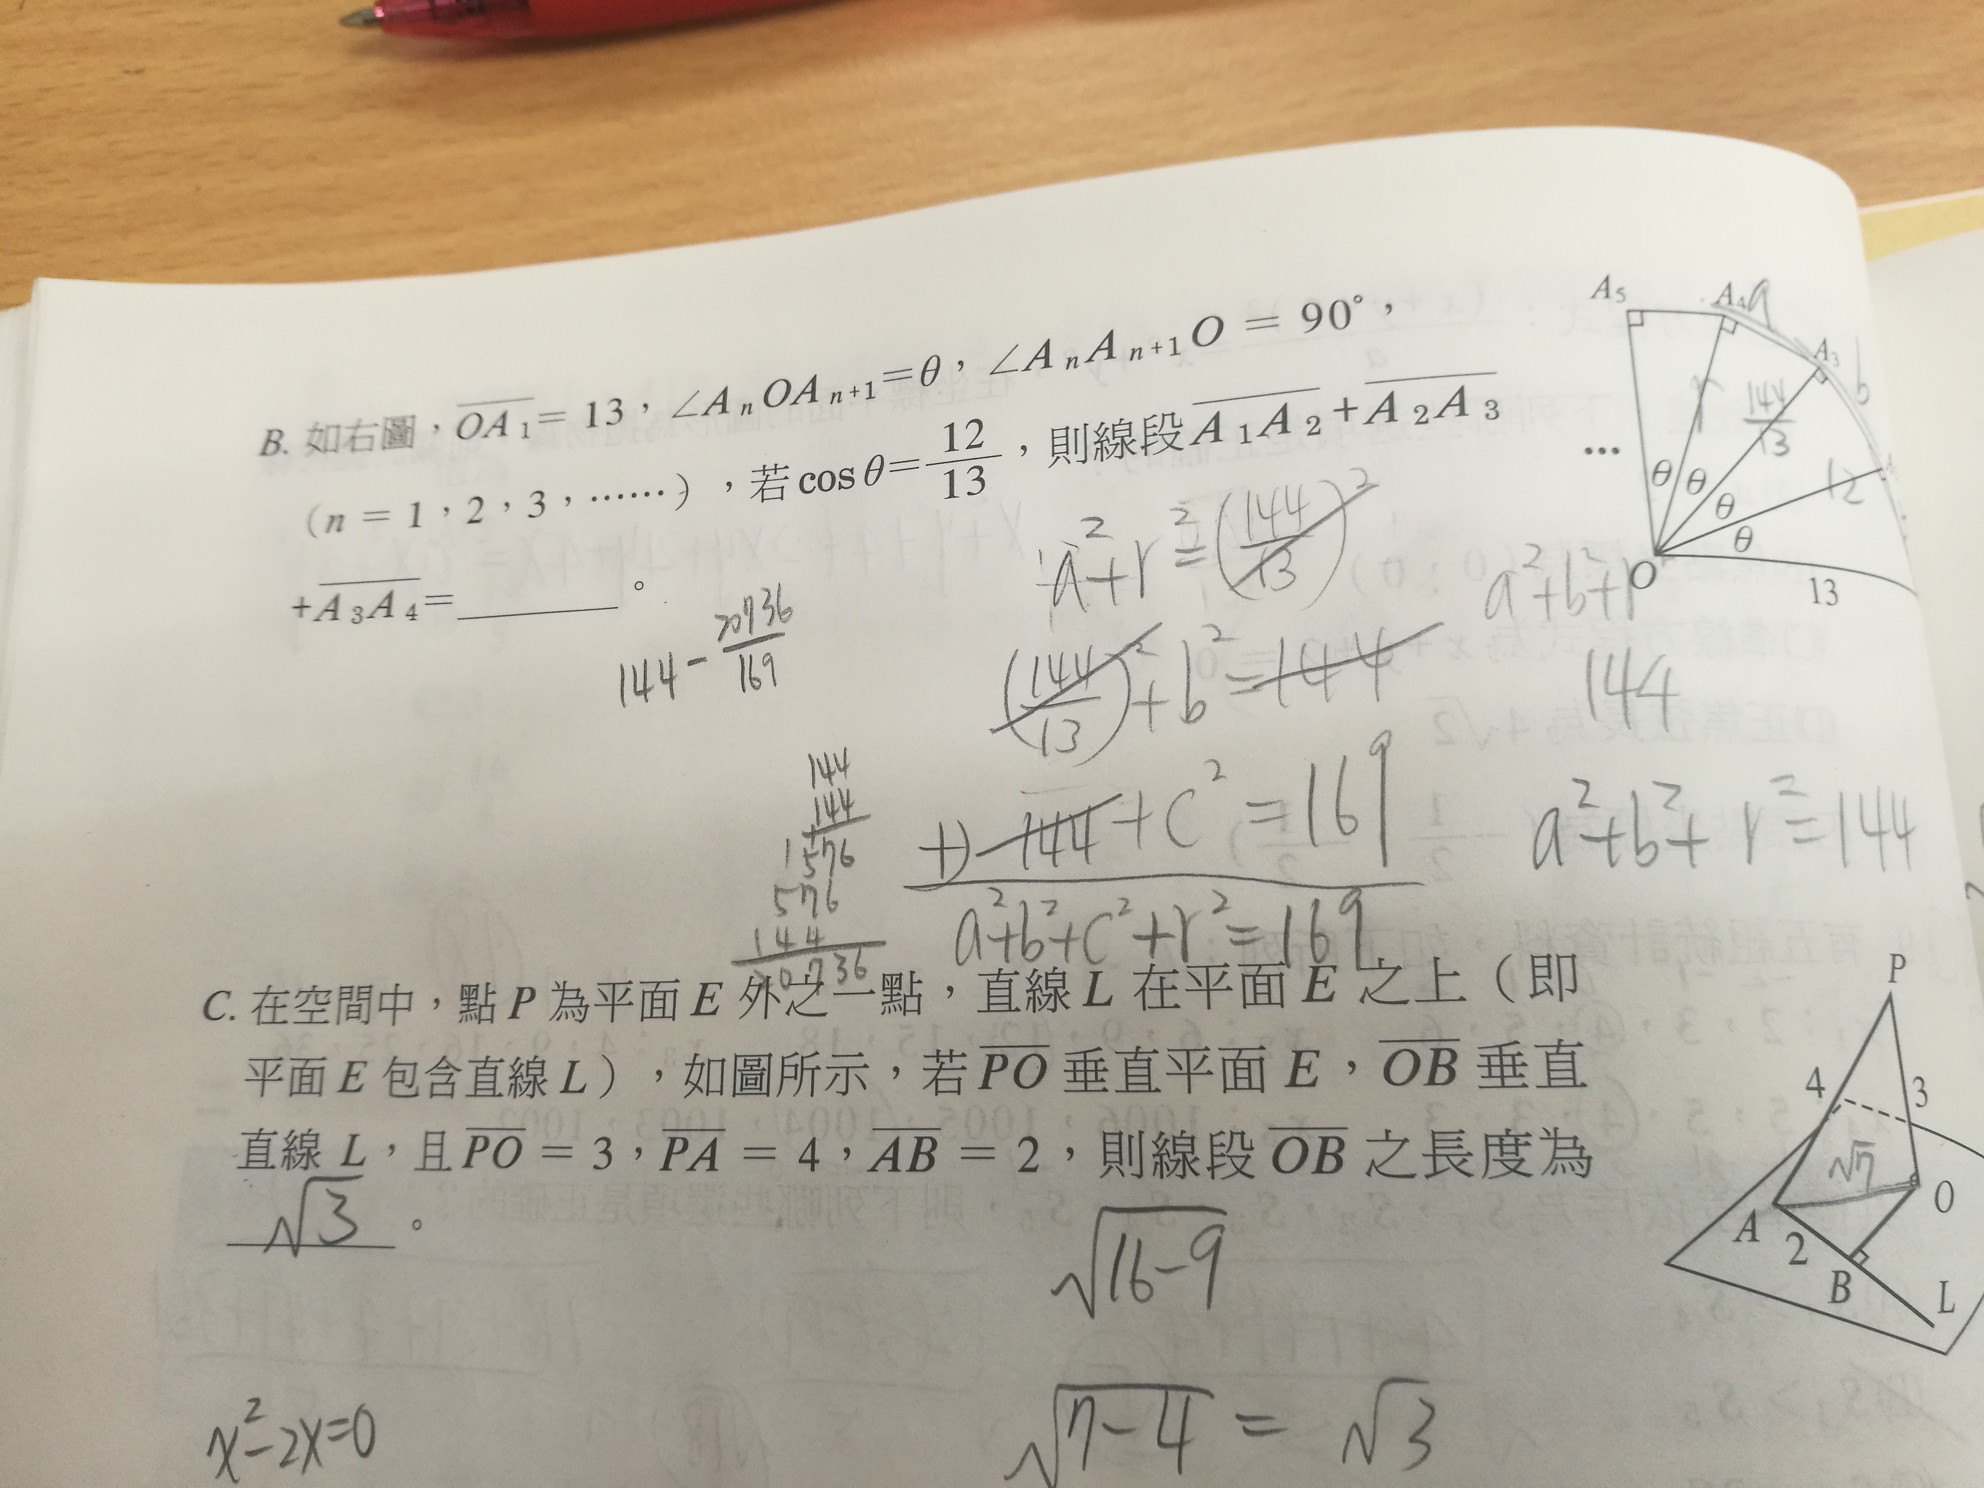 B. 如右圖，OA₁ = 13，∠AₙOAₙ₊₁ = θ，∠AₙAₙ₊₁O = 90°，
（n = 1，2，3，……），若 cos θ = 12/13，則線段 A₁A₂ + A₂A₃
+ A₃A₄ = ________。
A₅
A₄
a
A₃
b
r
144/13
12
…
θ θ θ θ
O
13
a²+r²=(144/13)²
a²+b²+r
144−20736/169
(144/13)²+b²=144
144
144
144
576
576
144
20736
+) 144+c²=169
a²+b²+r²=144
a²+b²+c²+r²=169
C. 在空間中，點 P 為平面 E 外之一點，直線 L 在平面 E 之上（即
平面 E 包含直線 L），如圖所示，若 PO 垂直平面 E，OB 垂直
直線 L，且 PO = 3，PA = 4，AB = 2，則線段 OB 之長度為
√3。
P
4
3
√7
A
O
2
B
L
√16−9
√7−4 = √3
x²−2x=0